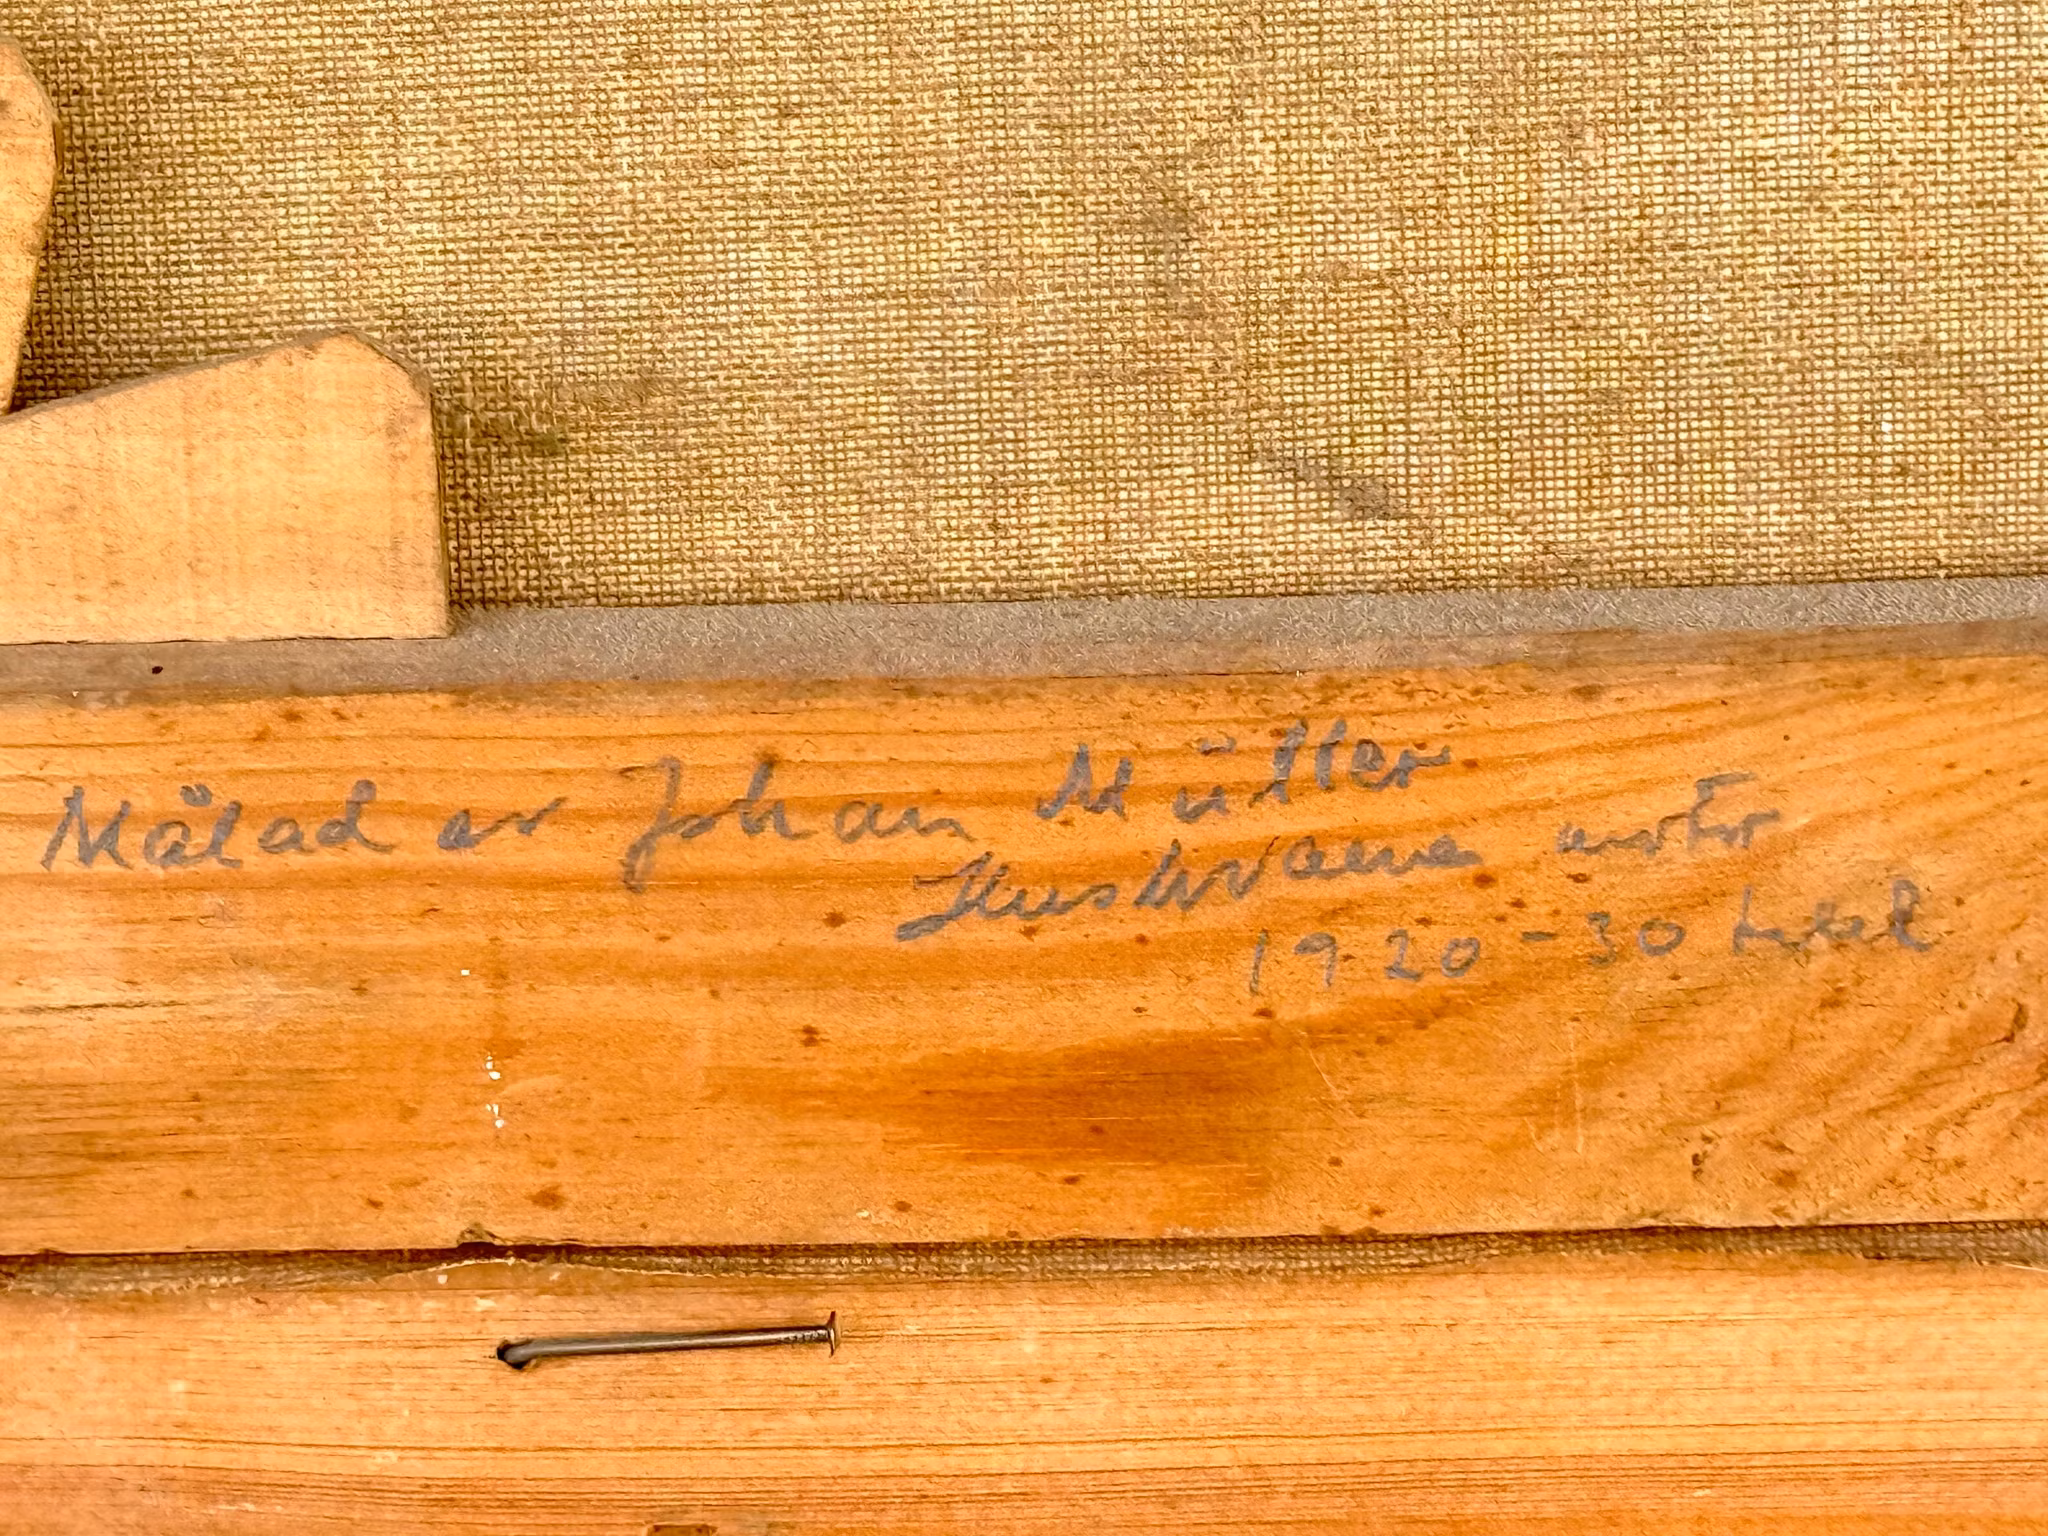 Målad av Johan Müller
Huskvarna
1920-30 talet